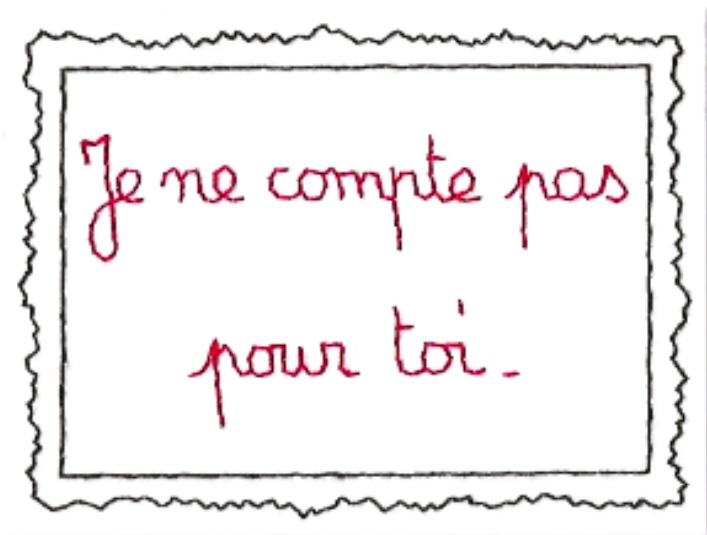 Je ne compte pas
pour toi.